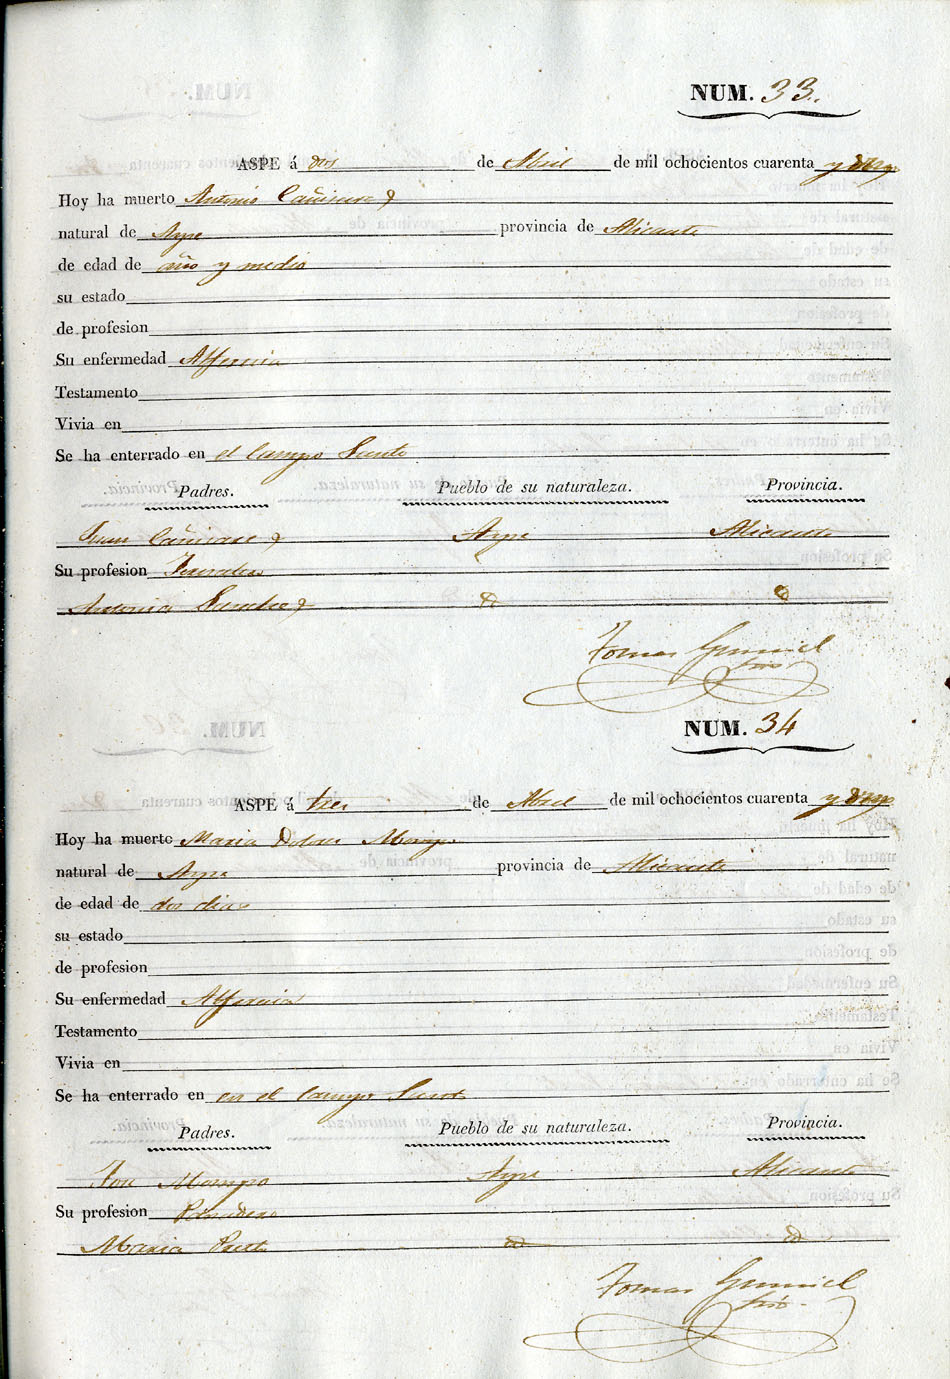 NUM. 33.
ASPE á dos de Abril de mil ochocientos cuarenta y
Hoy ha muerto Antonio Cañizares
natural de Aspe provincia de Alicante
de edad de año y medio
su estado
de profesion
Su enfermedad Alferecia
Testamento
Vivia en
Se ha enterrado en el Campo Santo
Padres. Pueblo de su naturaleza. Provincia.
Juan Cañizares Aspe Alicante
Su profesion Jornalero
Antonia Sanchez
Tomas Gumiel
NUM. 34
ASPE á tres de Abril de mil ochocientos cuarenta y
Hoy ha muerto Maria Dolores
natural de Aspe provincia de Alicante
de edad de dos dias
su estado
de profesion
Su enfermedad Alferecia
Testamento
Vivia en
Se ha enterrado en en el Campo Santo
Padres. Pueblo de su naturaleza. Provincia.
Jose Aspe Alicante
Su profesion Panadero
Maria
Tomas Gumiel